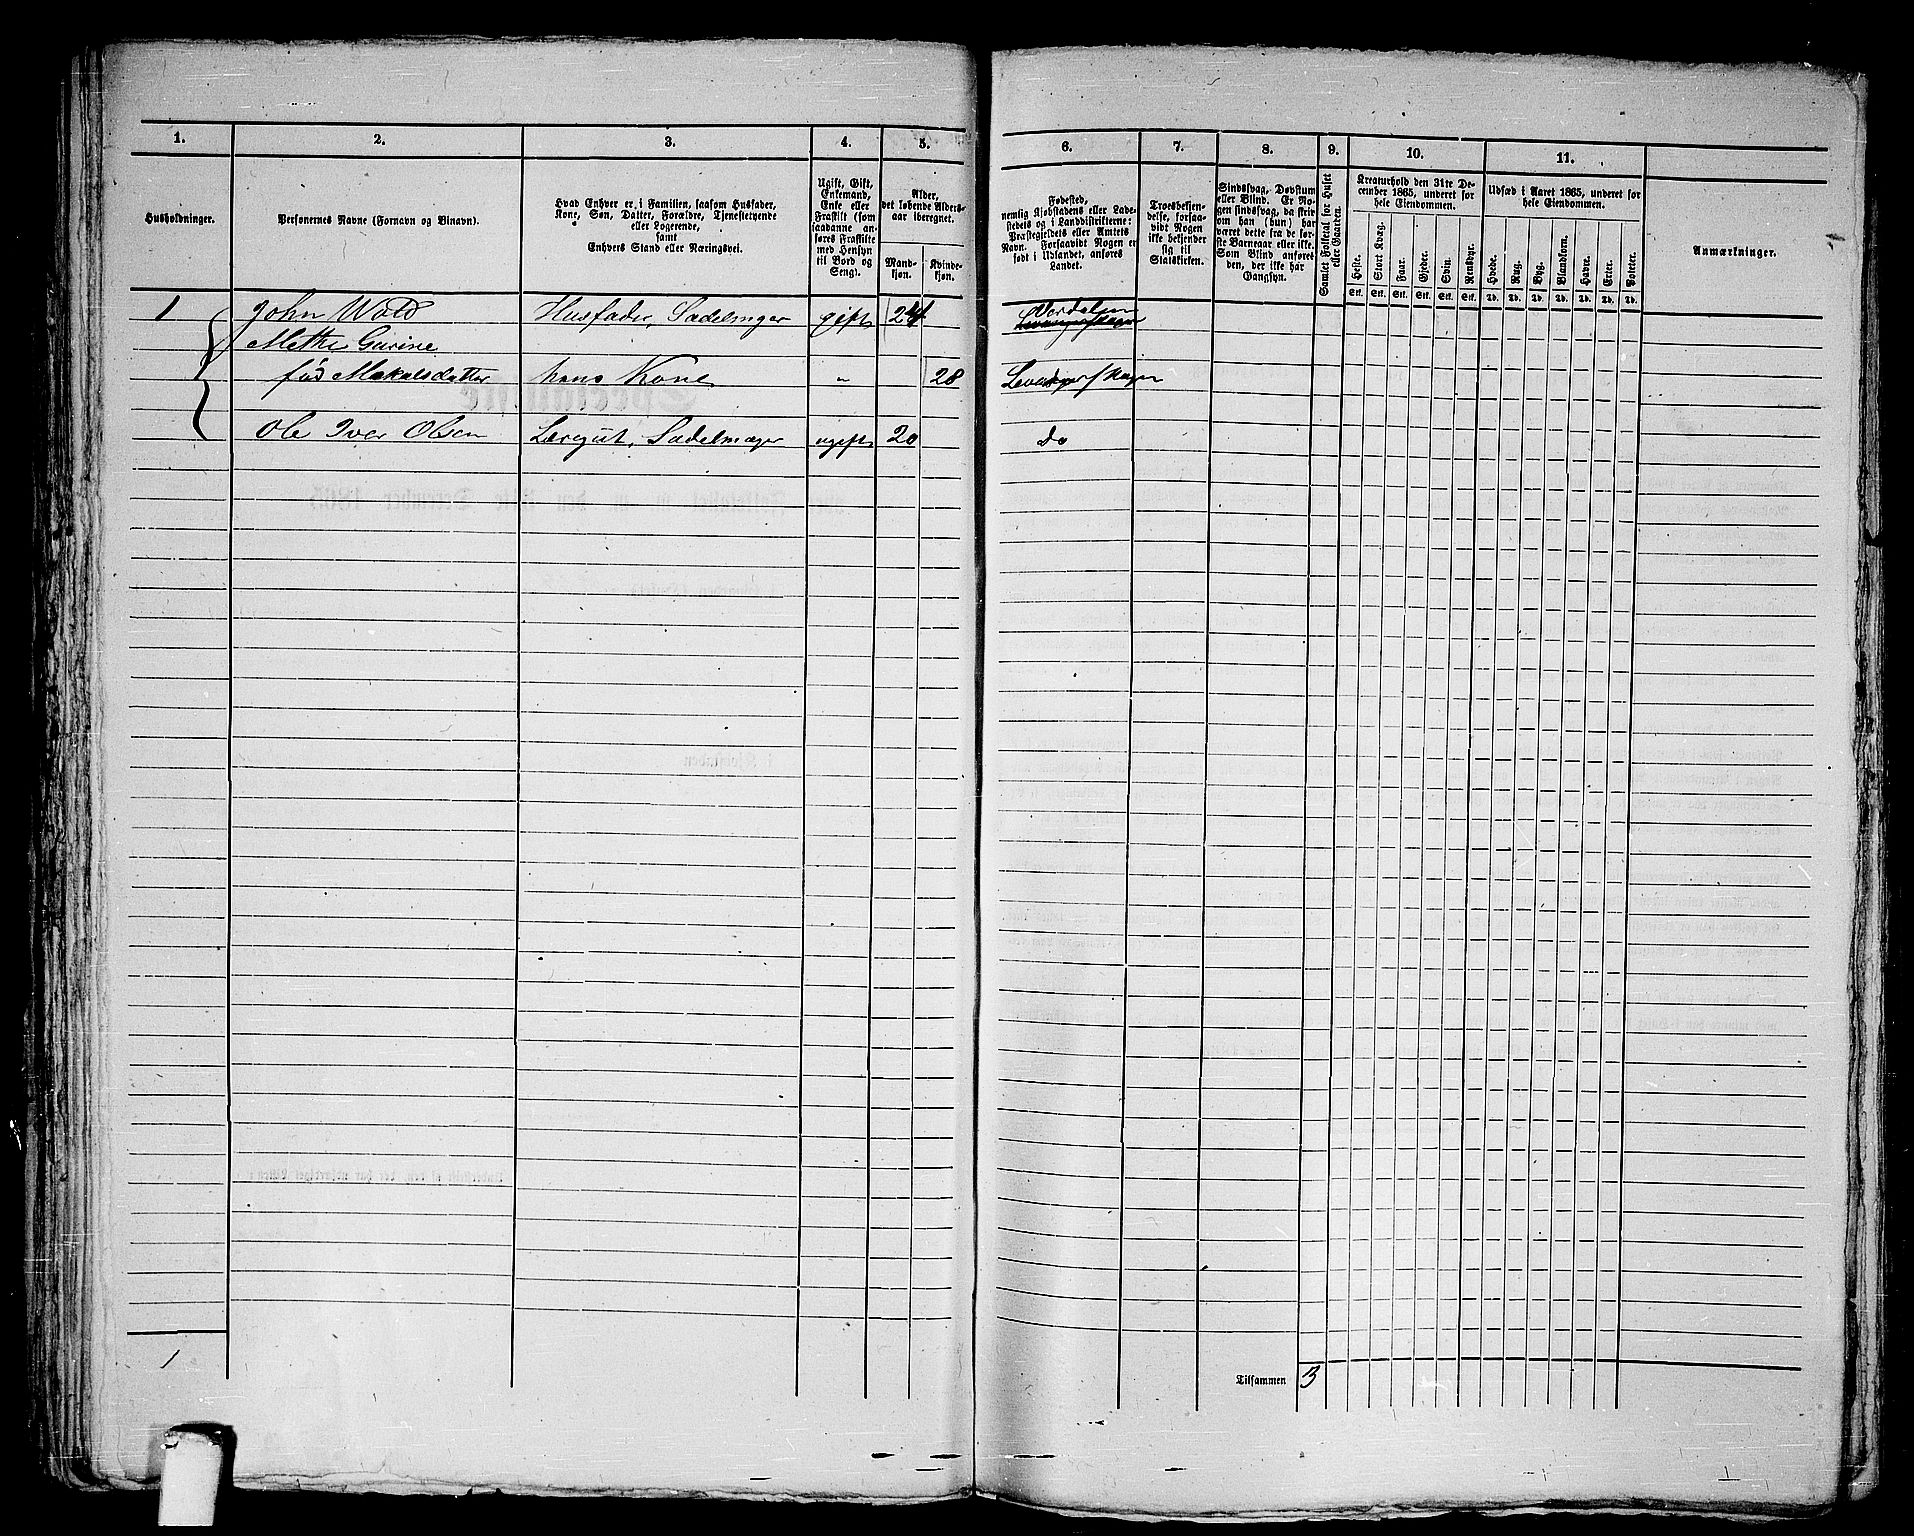 1.
2.
3.
4.
5.
6.
7.
8.
9.
10.
11.
Husholdninger.
Personernes Navne (Fornavn og Tilnavn).
Hvad Enhver er i Familien, saasom Husfader,
Kone, Søn, Datter, Forældre, Tjenestetyende
eller Logerende,
samt
Enhvers Stand eller Næringsvei.
Ugift, Gift,
Enkemand,
Enke eller
Fraskilt (som
saadanne an-
føres Fraskilte
med Hensyn
til Bord og
Seng).
Alder,
det løbende Alders-
aar iberegnet.
Mand-
kjøn.
Kvinde-
kjøn.
Fødested,
nemlig Kjøbstadens eller Lade-
stedets og i Landdistrikterne:
Præstegjeldets eller Amtets
Navn. Forsaavidt Nogen er
født i Udlandet, anføres
Landet.
Troesbekjen-
delse, forsaa-
vidt Nogen
ikke bekjender
sig til
Statskirken.
Sindssvag, Døvstum
eller Blind. Er No-
gen sindssvag, da skriv
om han (hun) har
været dette fra de før-
ste Barneaar eller ikke.
Som Blind anføres
den, der ikke har
Gangsyn.
Samlet Folketal for Huset
eller Gaarden.
Kreaturhold den 31te De-
cember 1865, underet for
hele Eiendommen.
Heste.
Stort Kvæg.
Faar.
Gjeder.
Svin.
Rensdyr.
Stk. Stk. Stk. Stk. Stk. Stk.
Udsæd i Aaret 1865, underet for
hele Eiendommen.
Hvede.
Rug.
Byg.
Blandkorn.
Havre.
Erter.
Poteter.
Td. Td. Td. Td. Td. Td. Td.
Anmærkninger.
1 John Wold Husfader, Sadelmager gift 24 Værdalen
Levanger Skogn
Methe Gurine
fød Mikalsdatter hans Kone " 28 Levanger Skogn
Ole Iver Olsen Læregut, Sadelmager ugift 20 do
1
Tilsammen 3